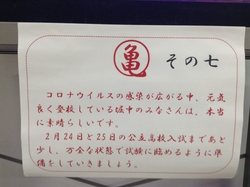 亀
その七
コロナウイルスの感染が広がる中、元気
良く登校している城中のみなさんは、本当
に素晴らしいです。
2月24日と25日の公立高校入試まであと
少し。万全な状態で試験に臨めるように準
備をしていきましょう。